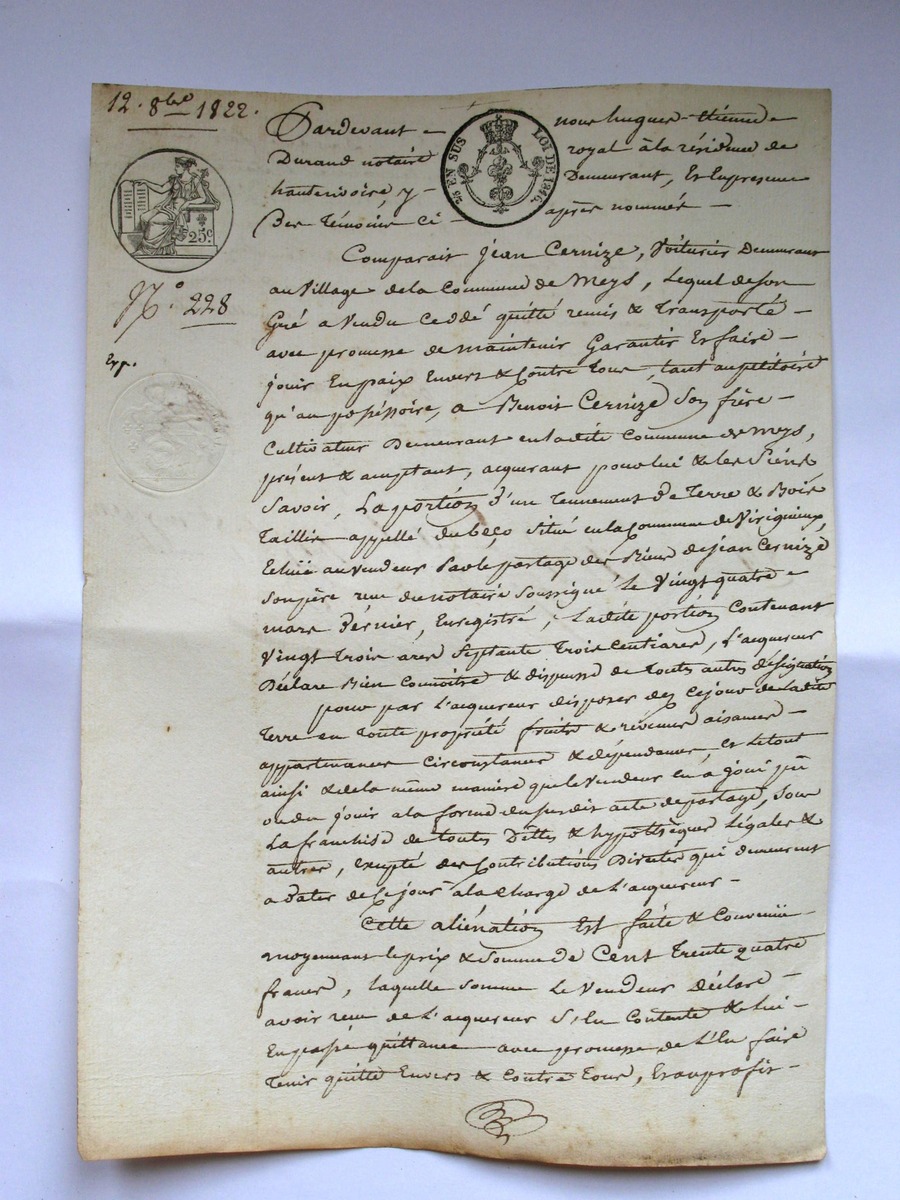 12. 8bre 1822.
25c.
N.° 228
Exp.
25 EN SUS LOI DE 1816.
Pardevant nous hugues-étienne
Durand notaire royal à la résidence de
hauterivoire, y Demeurant, Et En presence
Des Témoins Ci après nommés
Comparait jean Cernize, Voiturier Demeurant
au Village de la Commune de Meys, Lequel de Son
Gré a Vendu Ceddé quitté remis & Transporté
avec promesse de maintenir Garantir Et faire
jouir En paix Envers & Contre Tous, tant au pétitoire
qu'au poséssoire, a Benoit Cernize Son frère
Cultivateur Demeurant en la dite Commune de Meys,
présent & acceptant, acquerant pour lui & les Siens
Savoir, La portion d'un Tennement De Terre & Bois
Taillis appellé du beço Situé en la Commune de Virigneux,
Echüe au Vendeur Par le partage des Biens de jean Cernize
Son père reçu du notaire Soussigné Le Vingt quatre
mars Dérnier, Enregistré, Ladite portion Contenant
Vingt Trois ares Septante Trois Centiares, L'acquereur
Déclare Bien Connoitre & dispense de toutes autres désignations
pour par L'acquereur disposer dez Ce jour de Ladite
Terre en Toute propriété fruits & révenus aisances
appartenances Circonstances & dépendances, Et Le tout
ainsi & de la même manière que le Vendeur En a joui pû
ou du jouir a la forme du susdit acte de partage, Sous
La franchise de toutes Dèttes & hypothèques Légales &
autres, Excepté des Contributions Directes qui demeurent
a Dater de Ce jour a la Charge de L'acquereur
Cette aliénation Est faite & Convenüe
moyennant le prix & Somme de Cent Trente quatre
francs, laquelle Somme Le Vendeur Déclare
avoir reçu de L'acquereur S'En Contente & Lui
En passe quittance avec promesse de L'En faire
Tenir quitte Envers & Contre Tous, Et au profit